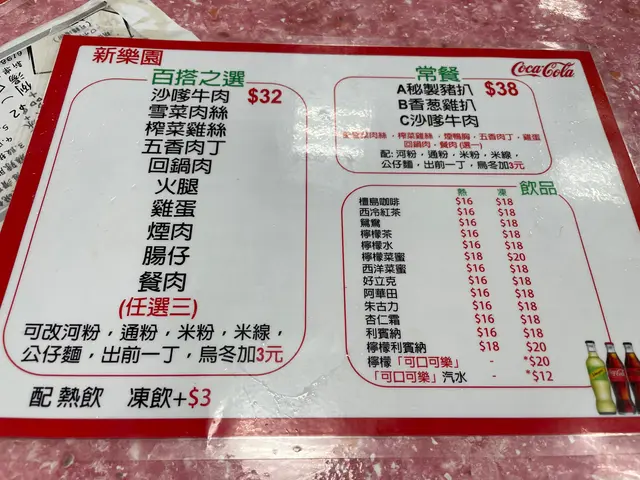 新樂園
Coca-Cola
百搭之選
沙嗲牛肉 $32
雪菜肉絲
榨菜雞絲
五香肉丁
回鍋肉
火腿
雞蛋
煙肉
腸仔
餐肉
(任選三)
可改河粉，通粉，米粉，米線，
公仔麵，出前一丁，烏冬加3元
配 熱飲 凍飲+$3
常餐
A秘製豬扒 $38
B香葱雞扒
C沙嗲牛肉
肉絲，榨菜雞絲，煙鴨胸，五香肉丁，雞蛋
回鍋肉，餐肉 (選一)
配: 河粉，通粉，米粉，米線，
公仔麵，出前一丁，烏冬加3元
飲品
熱 凍
檀島咖啡 $16 $18
西冷紅茶 $16 $18
鴛鴦 $16 $18
檸檬茶 $16 $18
檸檬水 $16 $18
檸檬菜蜜 $18 $20
西洋菜蜜 $16 $18
好立克 $16 $18
阿華田 $16 $18
朱古力 $16 $18
杏仁霜 $16 $18
利賓納 $16 $18
檸檬利賓納 $18 $20
檸檬「可口可樂」 - *$20
「可口可樂」汽水 - *$12